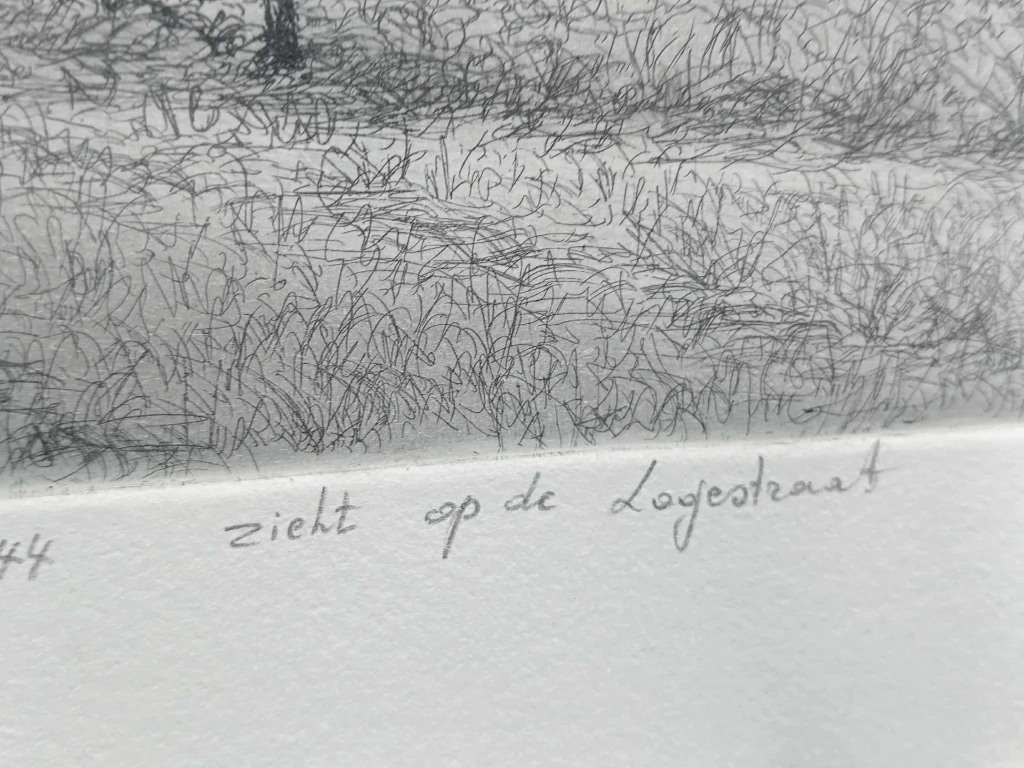 44 zicht op de Logestraat